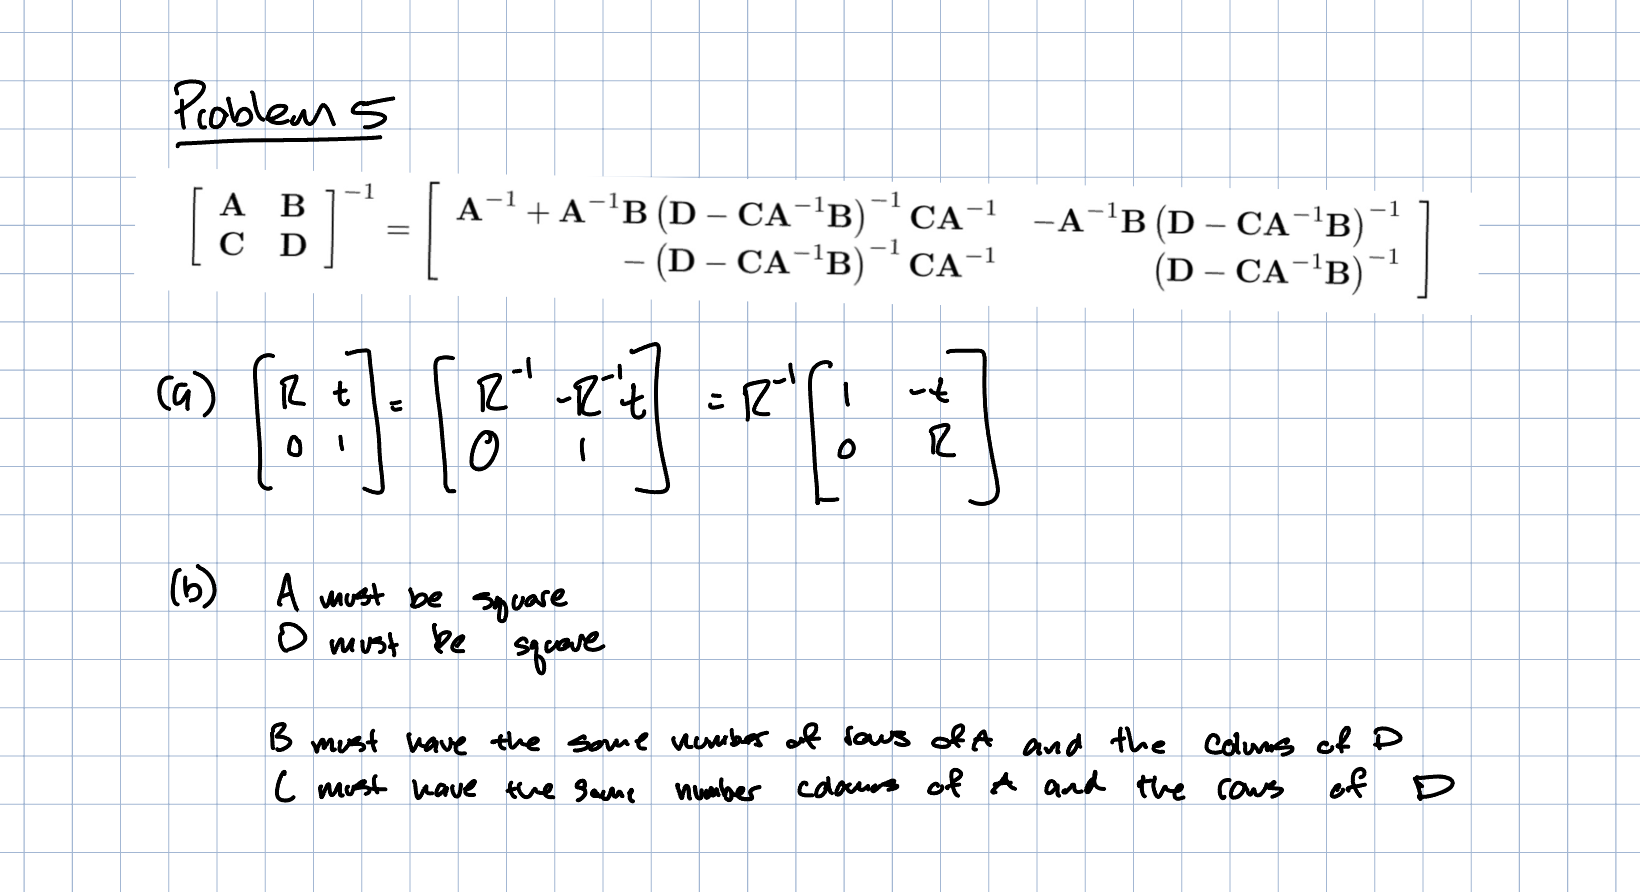 Problem 5
[ A B ; C D ]^{-1} = [ A^{-1} + A^{-1}B (D − CA^{-1}B)^{-1} CA^{-1}   −A^{-1}B (D − CA^{-1}B)^{-1} ; − (D − CA^{-1}B)^{-1} CA^{-1}   (D − CA^{-1}B)^{-1} ]
(a) [ R t ; 0 1 ] = [ R^{-1} -R^{-1}t ; 0 1 ] = R^{-1} [ 1 -t ; 0 R ]
(b) A must be square
D must be square
B must have the same number of rows of A and the colums of D
C must have the same number of A and the rows of D